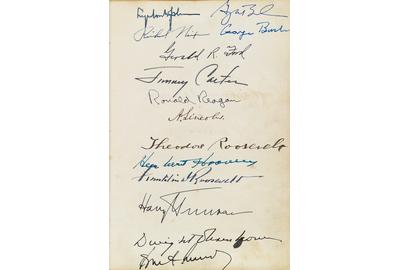 Richard Nixon George Bush
Gerald R. Ford
Jimmy Carter
Ronald Reagan
A. Lincoln.
Theodore Roosevelt
Herbert Hoover
Franklin D Roosevelt
Harry Truman
Dwight D Eisenhower